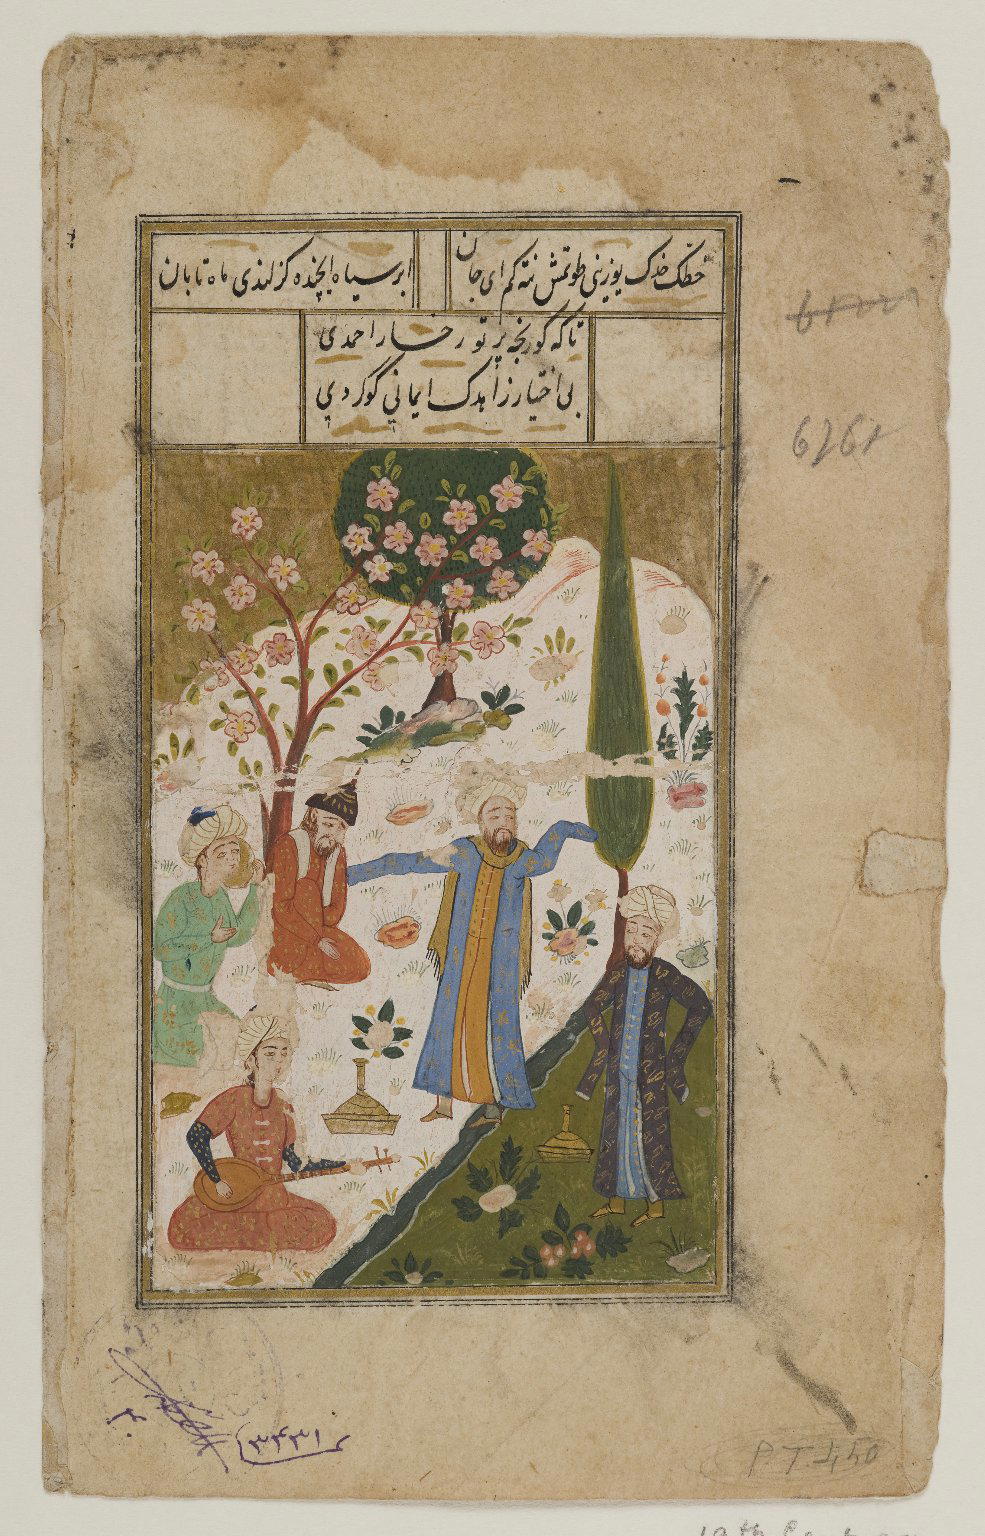 خطک خدک یوزینی طوتمش نته کم ای جان
ابر سیاه ایچنده کزلندی ماه تابان
تا که کورنجه پرتو رخسار احمدی
بی اختیار زاهدک ایمانی
6261
۳۴۳۱
19th